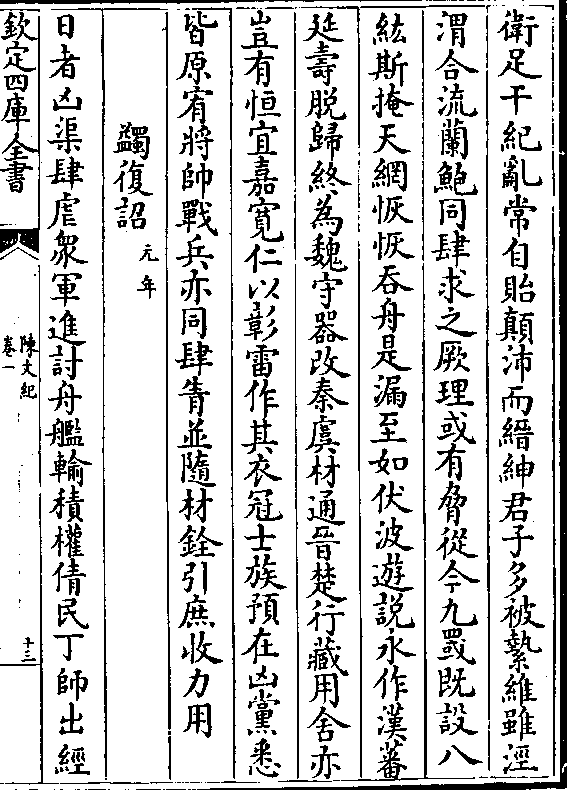 衛足干紀亂常自貽顛沛而縉紳君子多被縶維雖涇
渭合流蘭鮑同肆求之厥理或有脅從今九罭既設八
紘斯掩天網恢恢吞舟是漏至如伏波遊説永作漢蕃
延壽脱歸終為魏守器改秦虞材通晉楚行藏用舍亦
豈有恒宜嘉寛仁以彰雷作其衣冠士族預在凶黨悉
皆原宥將帥戰兵亦同肆眚並隨材銓引庶收力用
蠲復詔元年
日者凶渠肆虐衆軍進討舟艦輸積權倩民丁師出經
欽定四庫全書
陳文紀
卷一
十三